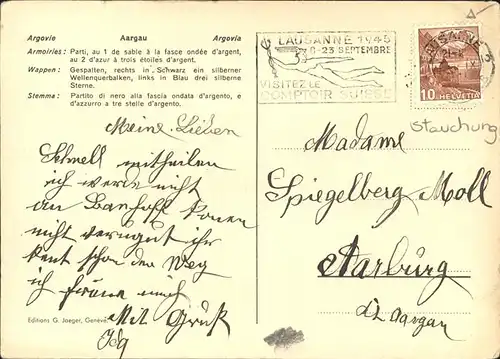 Argovie Aargau Argovia
Armoiries : Parti, au 1 de sable à la fasce ondée d'argent,
au 2 d'azur à trois étoiles d'argent.
Wappen : Gespalten, rechts in Schwarz ein silberner
Wellenquerbalken, links in Blau drei silberne
Sterne.
Stemma : Partito di nero alla fascia ondata d'argento, e
d'azzurro a tre stelle d'argento.
Meine Lieben
Schnell mitheilen
ich werde nicht
an Banhoff komen
nicht ihr
kent schon den Weg
ich mich
Mit Gruß
Editions G. Jaeger, Genève
LAUSANNE 1945
8-23 SEPTEMBRE
VISITEZ LE
COMPTOIR SUISSE
LAUSANNE
IX
10 HELVETIA
Stauchung
Madame
Spiegelberg Moll
Aarburg
Aargau